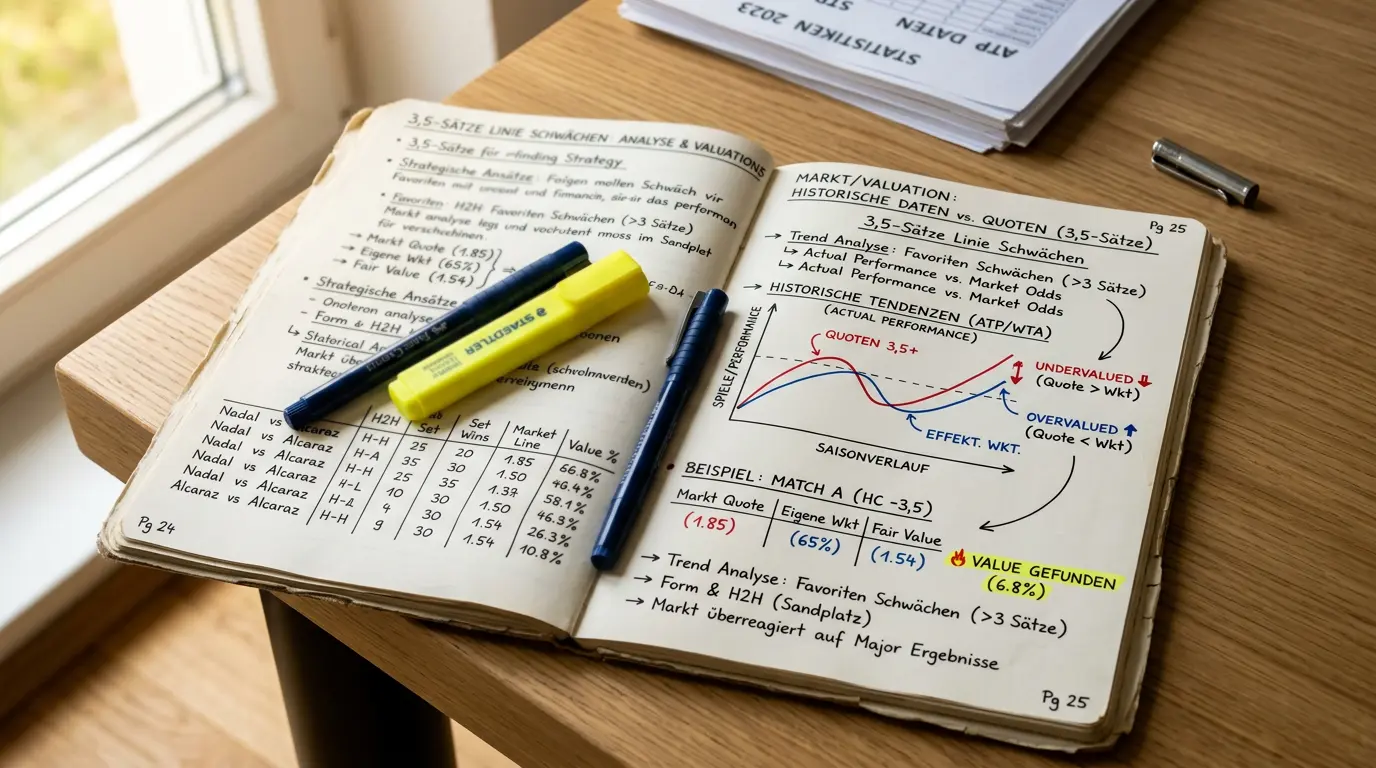 STATISTIKEN 2023
ATP DATEN
STR
3,5-SÄTZE LINIE SCHWÄCHEN: ANALYSE & VALUATIONS
• 3,5-Sätze für Strategy
• Strategische Ansätze: Folgen mollen Schwäch vir
Favoriten mit und das performan
• Favoriten: H2H Favoriten Schwächen (>3 Sätze)
Markt analyse legs und moss im Sandplet
für verschiebinen.
→ Markt Quote (1.85)
→ Eigene Wkt (65%)
→ Fair Value (1.54)
• Strategische Ansätze
- Onoleron analyse
- Form & H2H
↳ Statorical An
Markt üb
(schvolnaverden)
H2H Set Set Wins Market Line Value %
Nadal vs Alcaraz H-H 25 20 1.85 66.8%
Nadal vs Alcaraz H-A 35 30 1.50 46.4%
Nadal vs Alcaraz H-H 25 35 1.37 58.1%
Nadal vs Alcaraz H-L 10 30 1.50 46.3%
Nadal vs Alcaraz 4 30 1.54 26.3%
Alcaraz vs Alcaraz H-H 9 30 1.54 10.8%
Pg 24
STAEDTLER
MARKT/VALUATION:
HISTORISCHE DATEN vs. QUOTEN (3,5-Sätze)
Pg 25
3,5-Sätze Linie Schwächen
→ Trend Analyse: Favoriten Schwächen (>3 Sätze)
↳ Actual Performance vs. Market Odds
↳ Actual Performance vs. Market Odds
→ HISTORISCHE TENDENZEN (ATP/WTA)
(ACTUAL PERFORMANCE)
SPIELE/PERFORMANCE
QUOTEN 3,5+
UNDERVALUED
(Quote > Wkt)
OVERVALUED
(Quote < Wkt)
EFFEKT. WKT.
SAISONVERLAUF
BEISPIEL: MATCH A (HC -3,5)
Markt Quote Eigene Wkt Fair Value
(1.85) (65%) (1.54)
🔥 VALUE GEFUNDEN
(6.8%)
→ Trend Analyse: Favoriten Schwächen (>3 Sätze)
→ Form & H2H (Sandplatz)
→ Markt überreagiert auf Major Ergebnisse
Pg 25